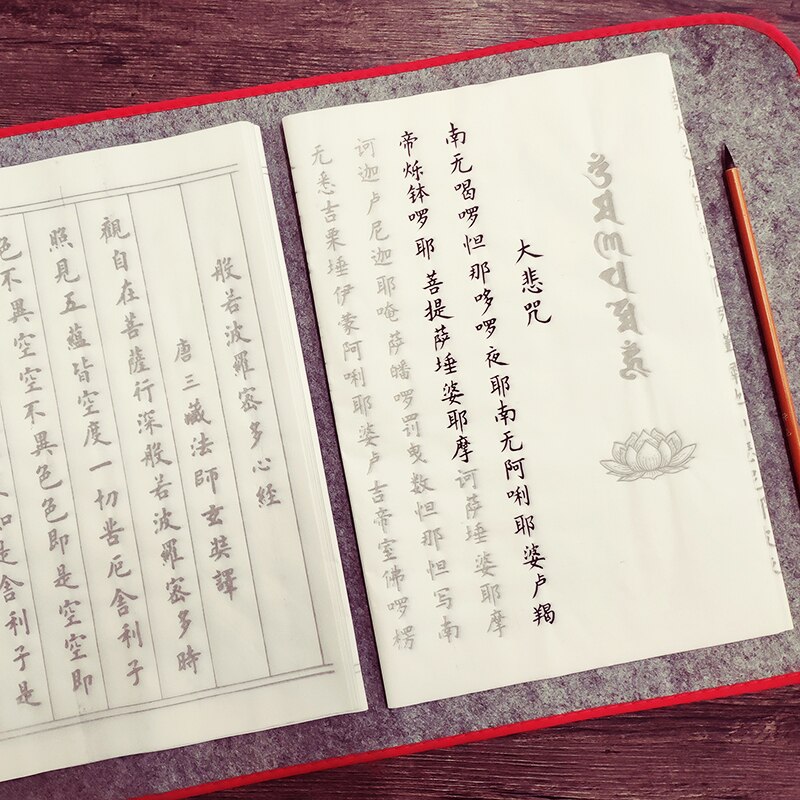 大悲咒
南无喝啰怛那哆啰夜耶南无阿唎耶婆卢羯
帝烁钵啰耶菩提萨埵婆耶摩诃萨埵婆耶摩
诃迦卢尼迦耶唵萨皤啰罚曳数怛那怛写南
无悉吉栗埵伊蒙阿唎耶婆卢吉帝室佛啰楞
般若波羅密多心經
唐三藏法師玄奘譯
觀自在菩薩行深般若波羅密多時
照見五蘊皆空度一切苦厄舍利子
色不異空空不異色色即是空空即
如是舍利子是